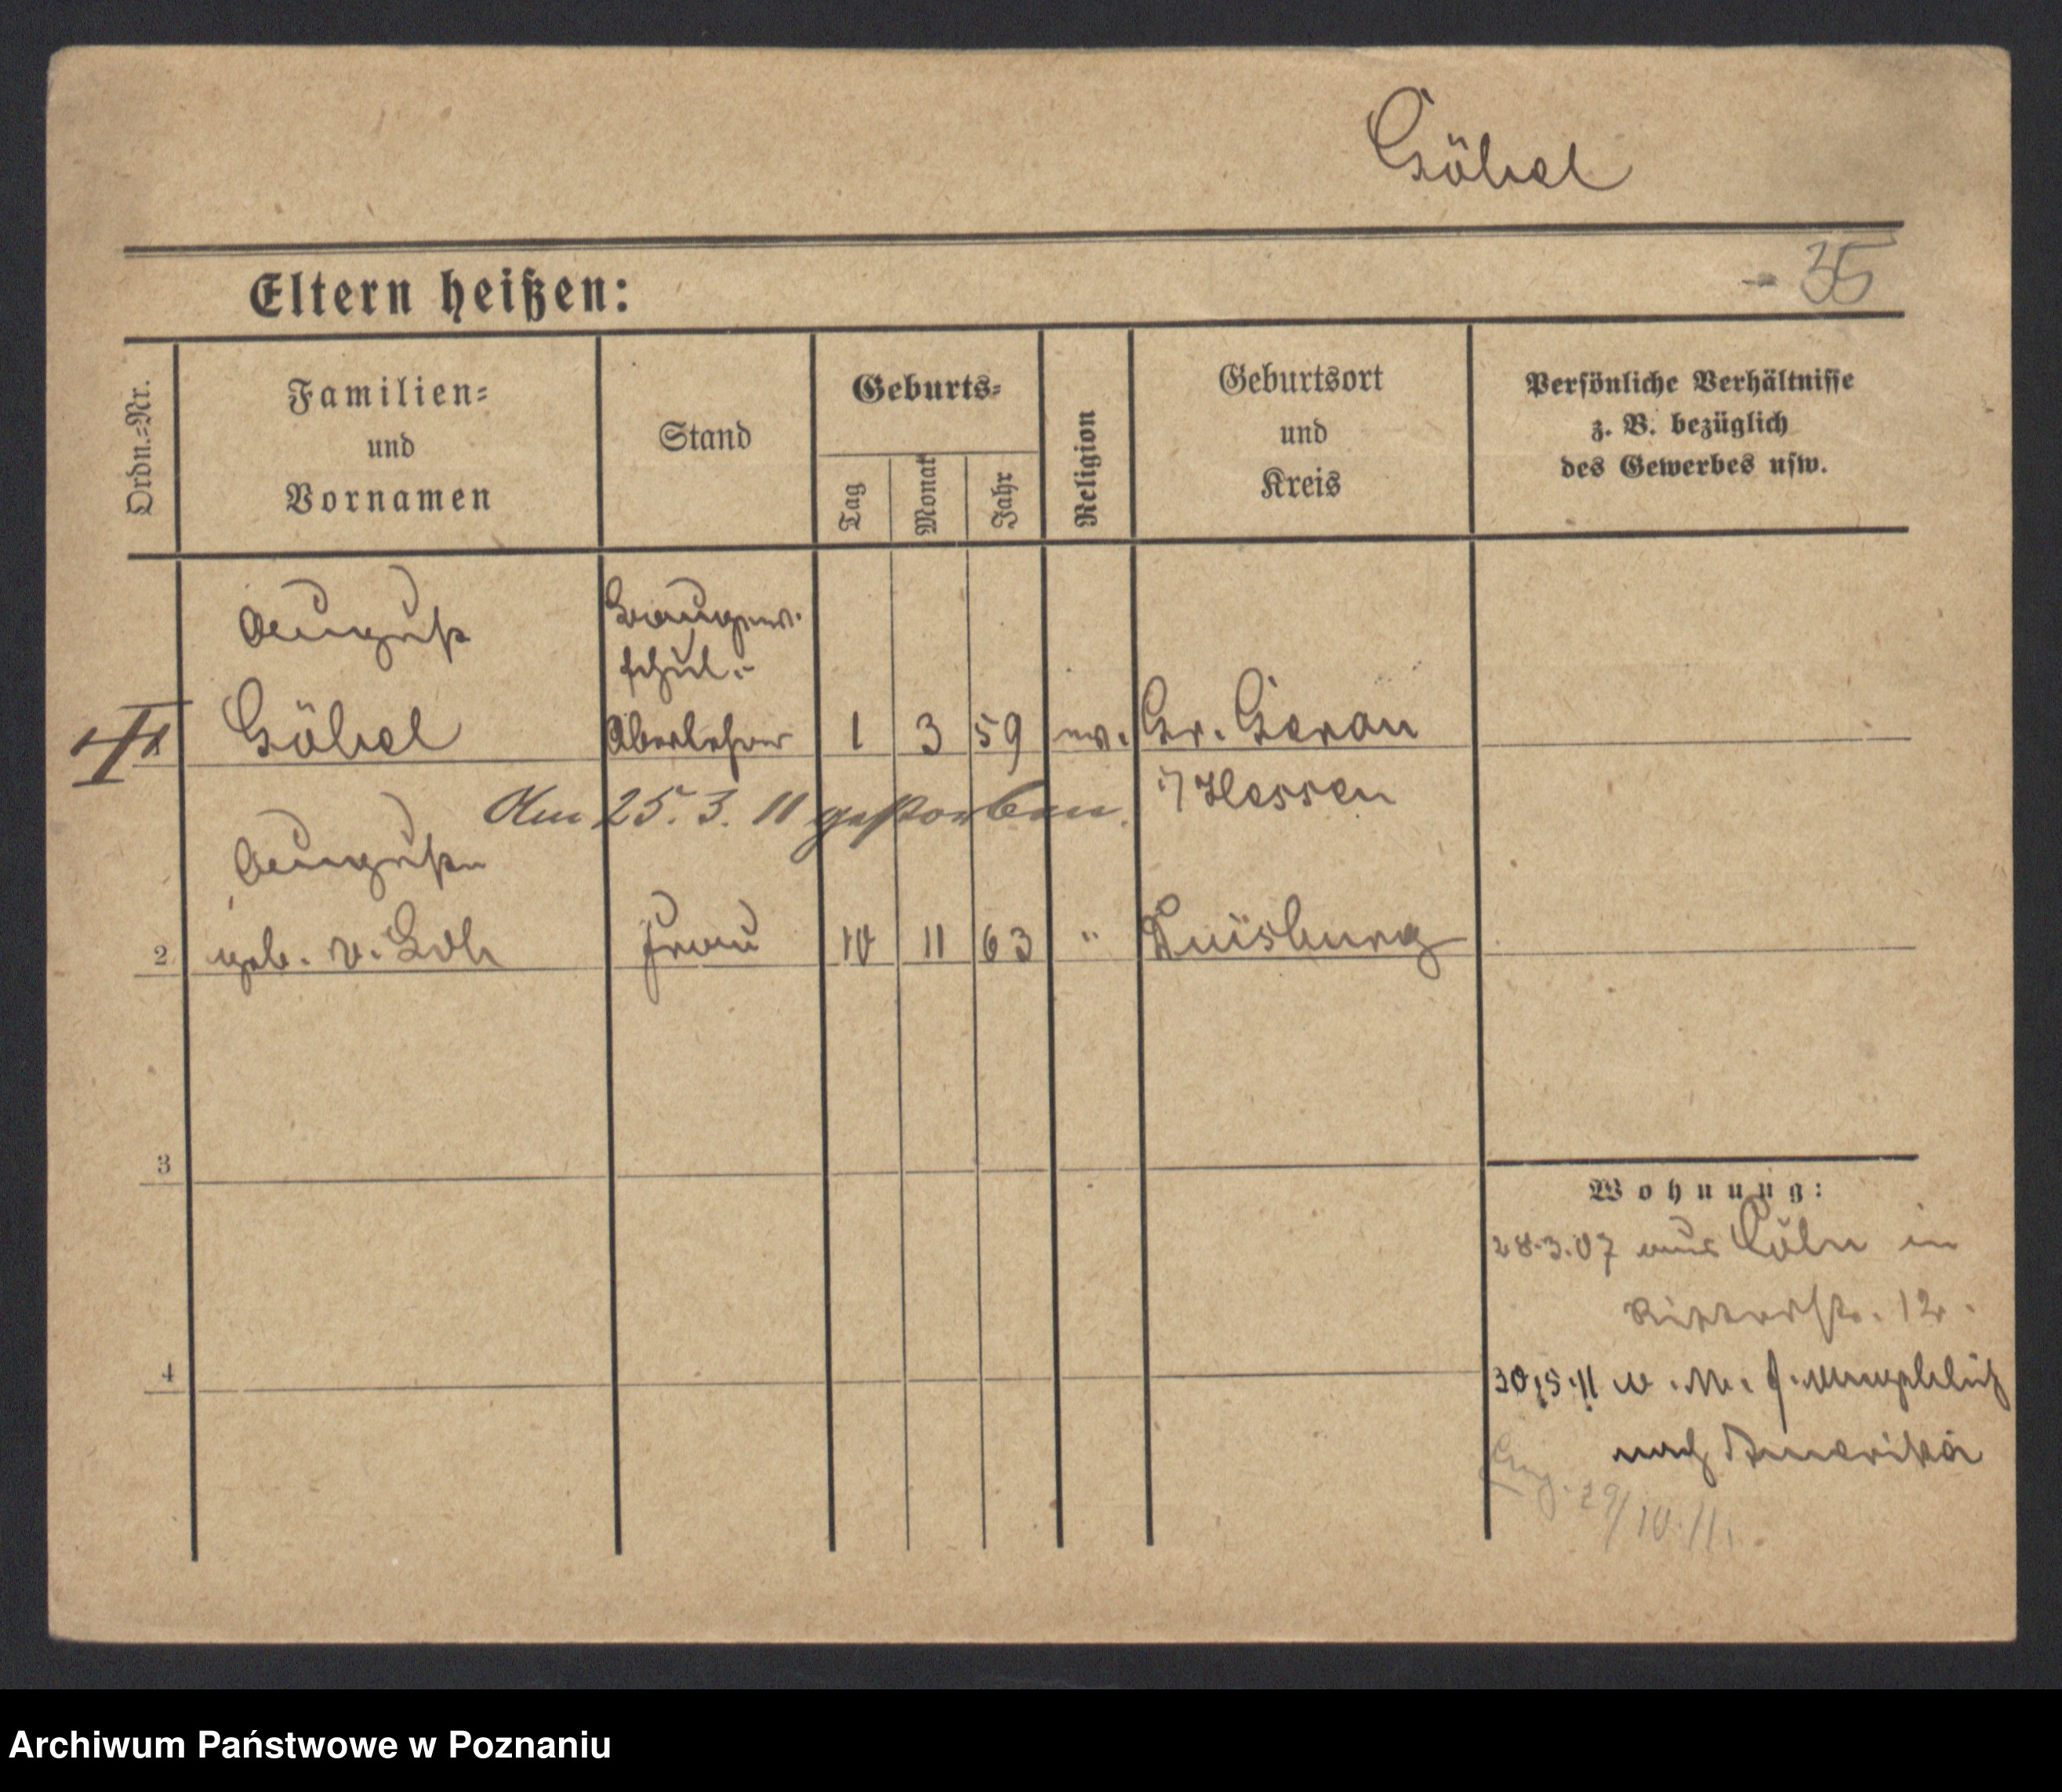 Göbel
- 35
Eltern heißen:
Ordn.=Nr.
Familien=
und
Vornamen
Stand
Geburts=
Tag
Monat
Jahr
Religion
Geburtsort
und
Kreis
Persönliche Verhältnisse
z. B. bezüglich
des Gewerbes usw.
August
Baugew.
schul.-
Göbel Oberlehrer 1 3 59 ev. Gr. Gerau
i/ Hessen
Am 25. 3. 11 gestorben.
Auguste
2 geb. v. Loh Frau 10 11 63 " Duisburg
3
Wohnung:
28.3.07 aus Cöln in
Ritterstr. 12.
4
30/5.11 angeblich
nach Amerika
29/10.11.
Archiwum Państwowe w Poznaniu